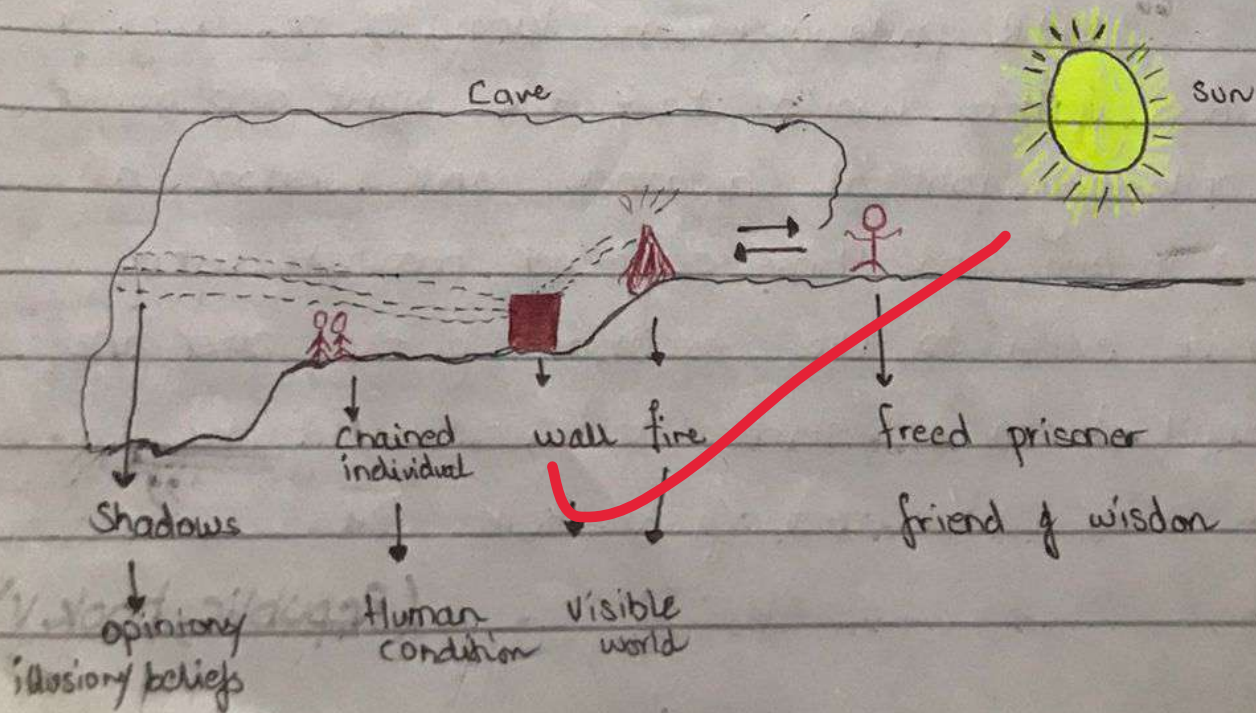 Cave
SUN
Chained
individual
wall
fire
freed prisoner
Shadows
friend of wisdon
opinions
illusions/beliefs
Human
condition
visible
world